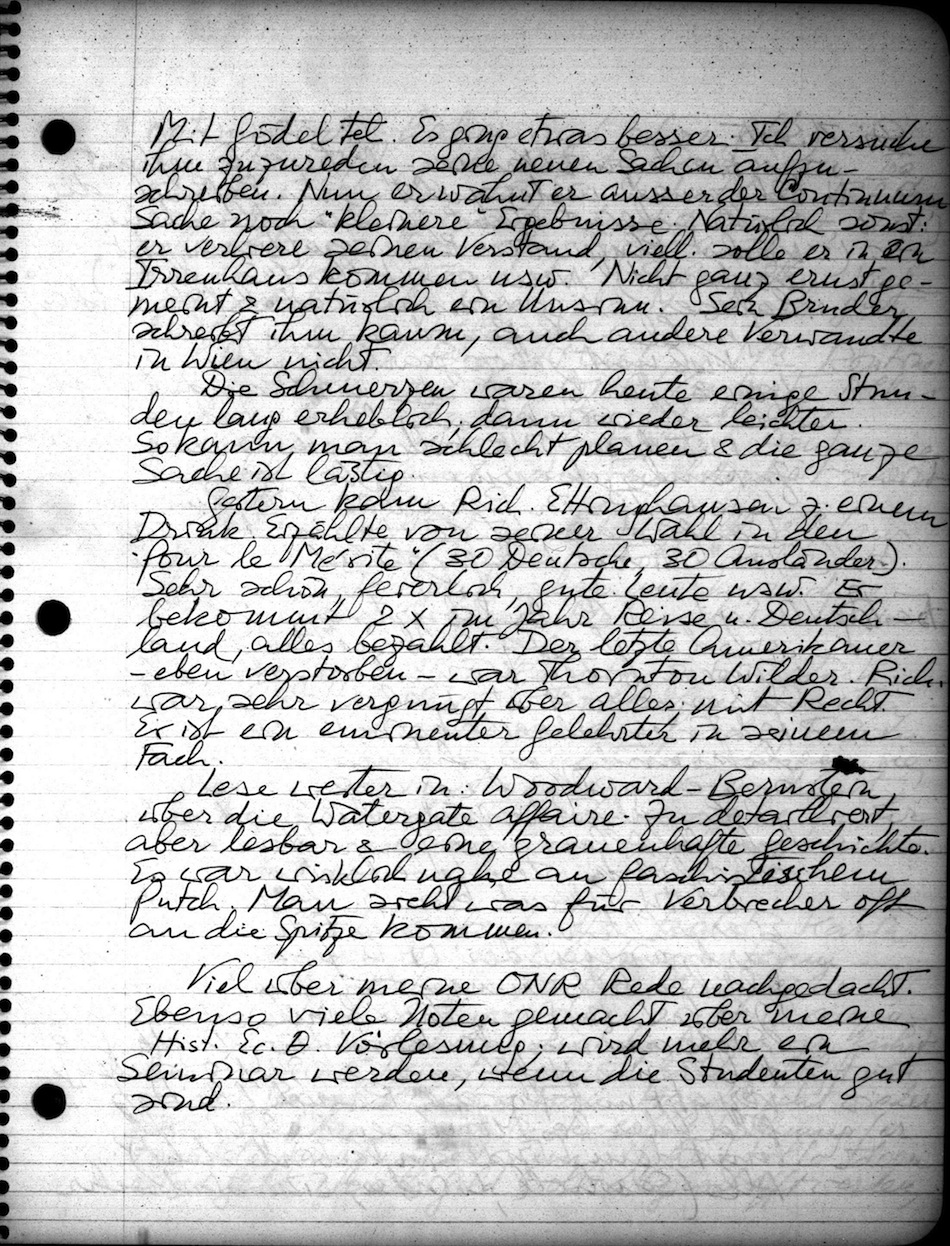 Mit Gödel tel. Es ging etwas besser. Ich versuche
ihm zuzureden seine neuen Sachen aufzu-
schreiben. Nun erwähnt er ausser der Continuum
Sache noch "kleinere" Ergebnisse. Natürlich sonst:
er verliere seinen Verstand, viell. solle er in ein
Irrenhaus kommen usw. Nicht ganz ernst ge-
meint & natürlich ein Unsinn. Sein Bruder
schreibt ihm kaum, auch andere Verwandte
in Wien nicht.
Die Schmerzen waren heute einige Stun-
den lang erheblich, dann wieder leichter.
So kann man schlecht planen & die ganze
Sache ist lästig.
Gestern kam Rich. Ettinghausen z. einem
Drink. Erzählte von seiner Wahl in den
"Pour le Mérite" (30 Deutsche, 30 Ausländer).
Sehr schön, feierlich, gute Leute usw. Er
bekommt 2 x im Jahr Reise n. Deutsch-
land, alles bezahlt. Der letzte Amerikaner
- eben verstorben - war Thornton Wilder. Rich.
war sehr vergnügt über alles; mit Recht.
Er ist ein eminenter Gelehrter in seinem
Fach.
Lese weiter in: Woodward-Bernstein
über die Watergate Affaire. Zu detailliert,
aber lesbar & eine grauenhafte Geschichte.
Es war wirklich nahe an faschistischem
Putch. Man sieht was für Verbrecher oft
an die Spitze kommen.
Viel über meine ONR Rede nachgedacht.
Ebenso viele Noten gemacht über meine
Hist. Ec. D. Vorlesung; wird mehr ein
Seminar werden, wenn die Studenten gut
sind.